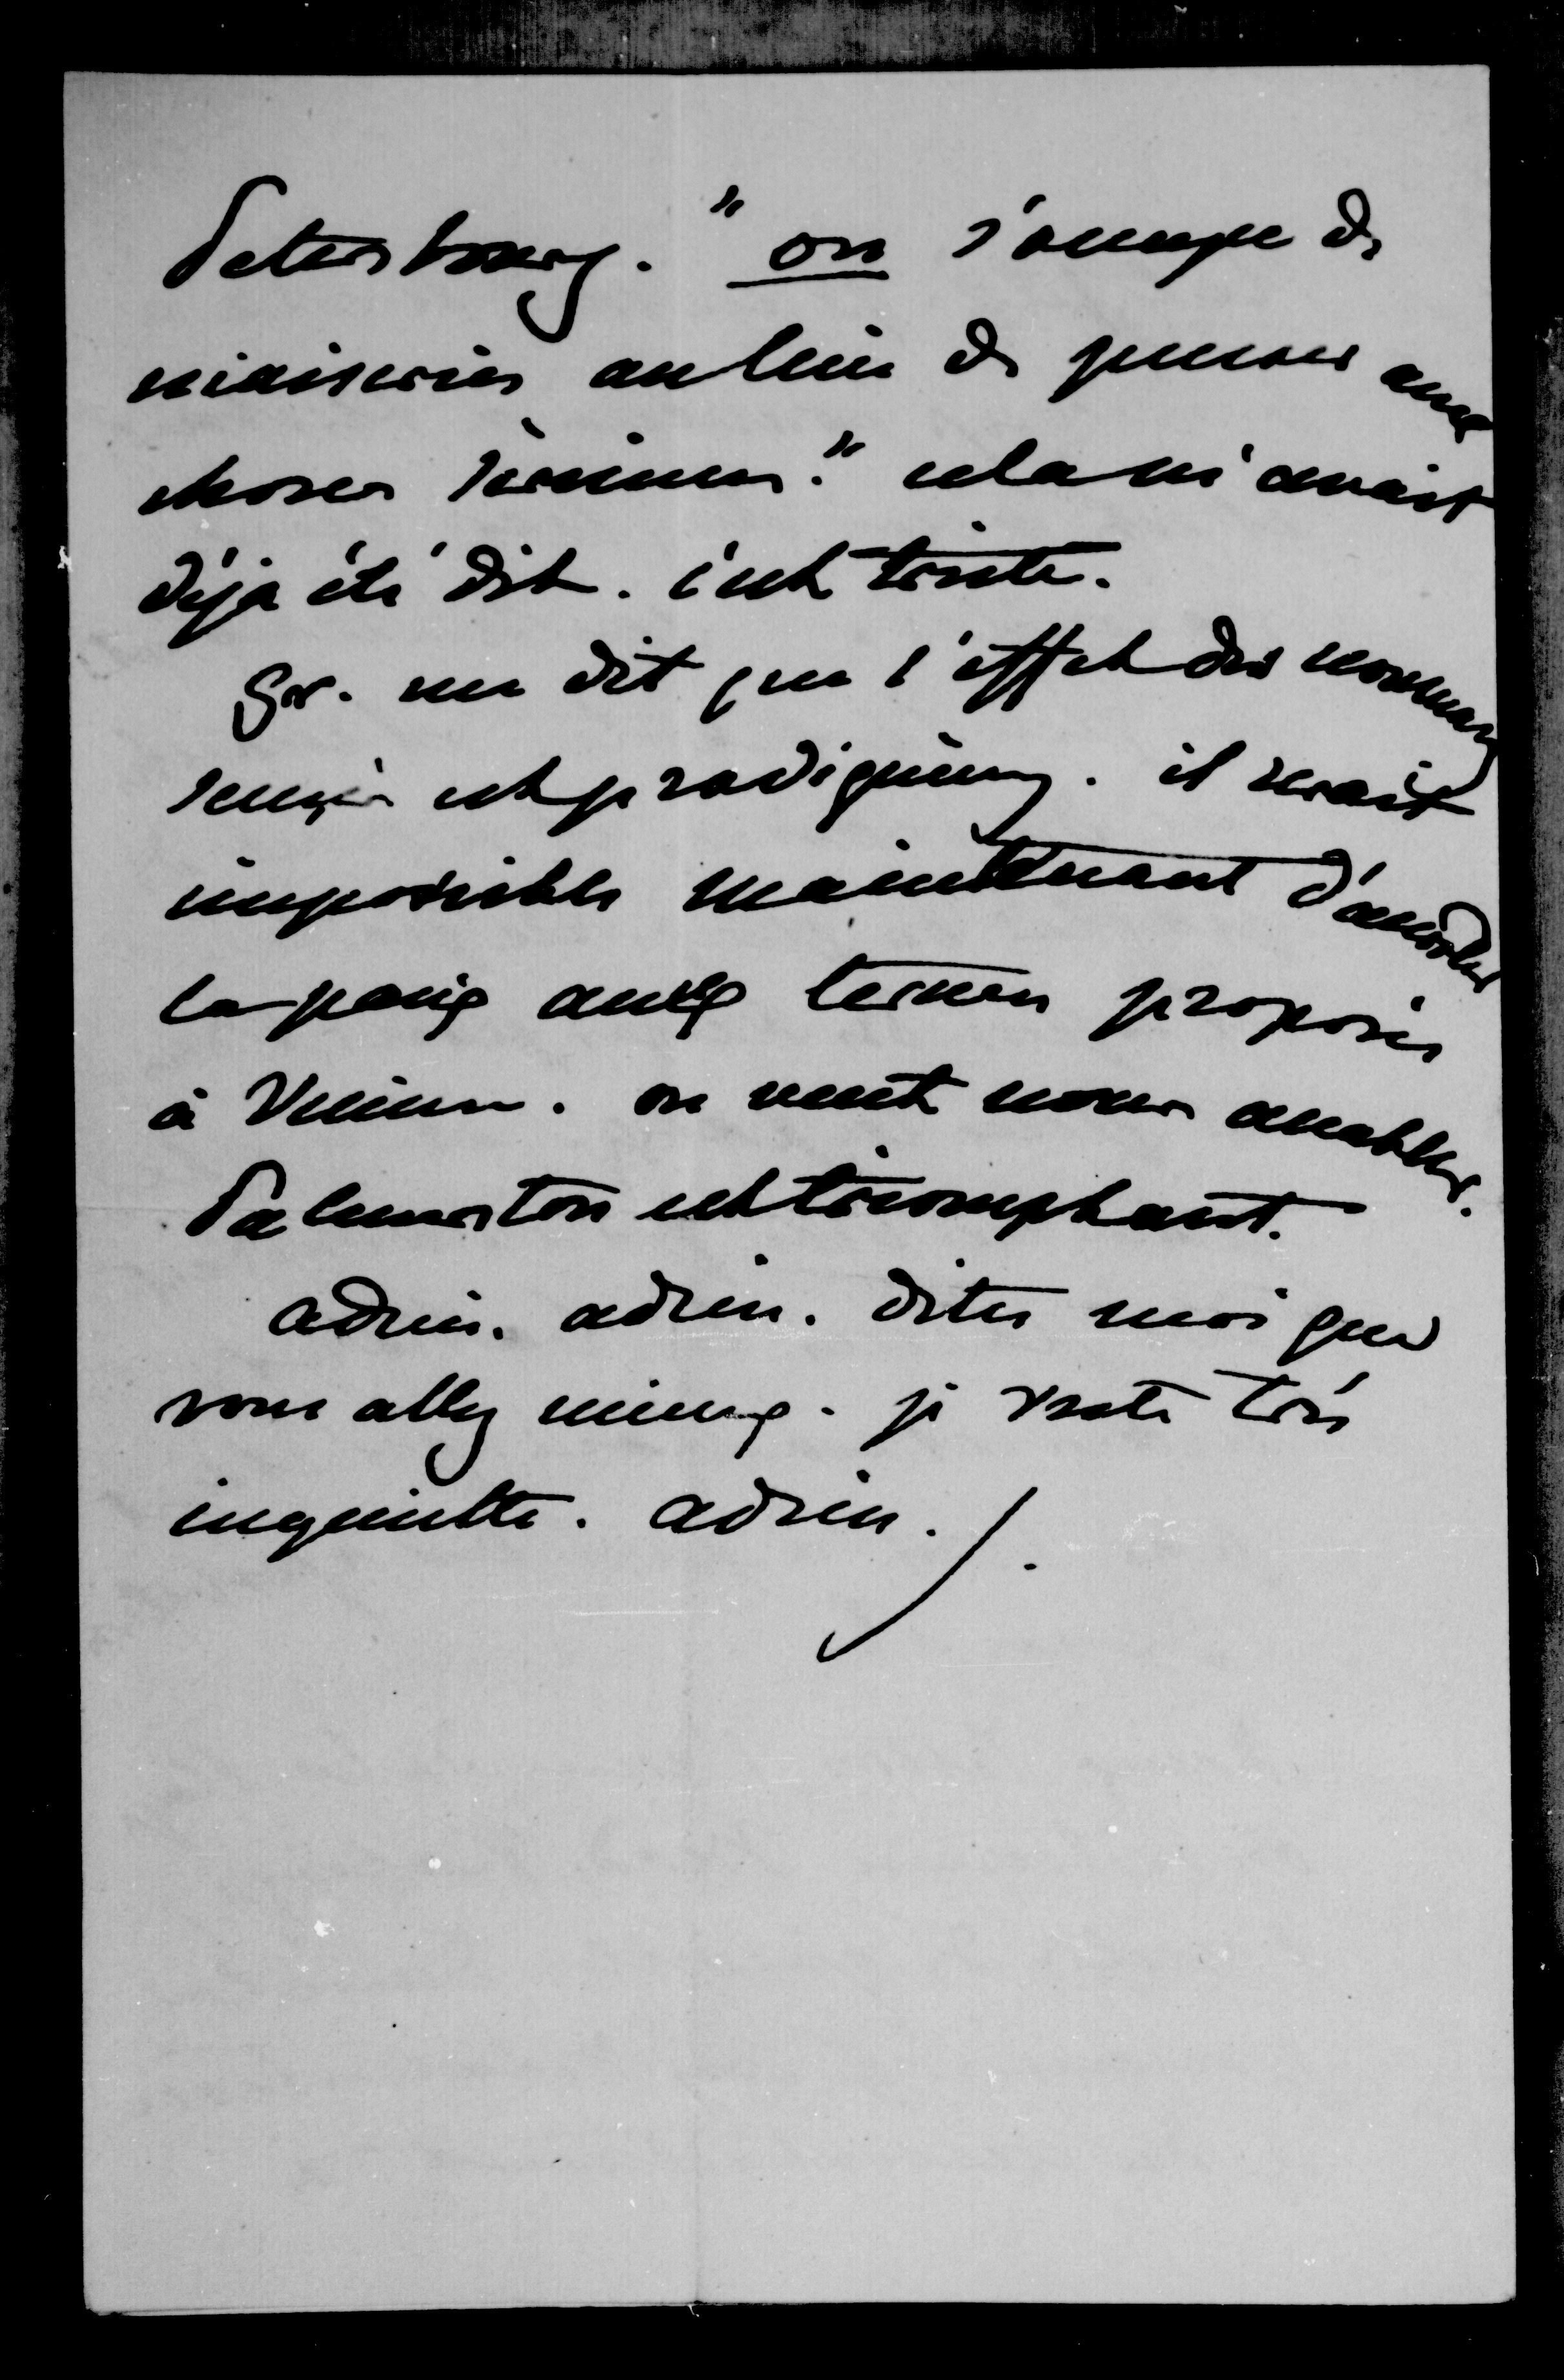 Petersbourg. "on s'occupe de
niaiseries au lieu de penser aux
choses sérieuses." cela m'avait
déja été dit. c'est triste.
Gr. me dit que l'effet des nouveaux
succès est prodigieux. il serait
impossible maintenant d'accorder
la paix aux termes proposés
à Vienne. on veut nous accabler.
Palmerston est triomphant.
adieu. adieu. dites moi que
vous allez mieux. je reste très
inquiette. adieu.